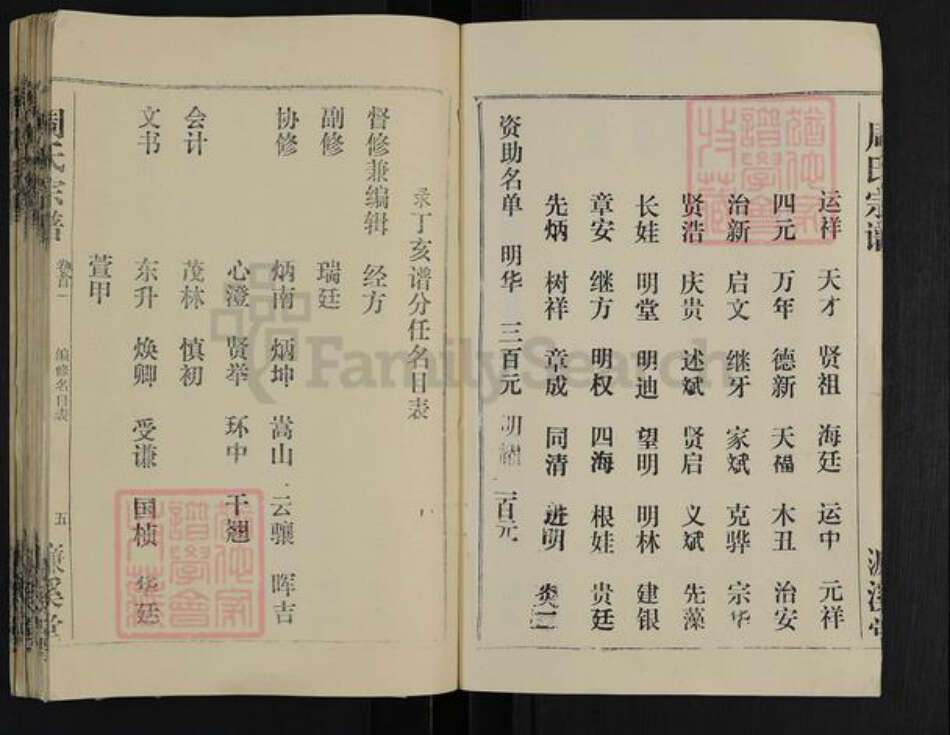 周氏宗谱
运祥 天才 贤祖 海廷 运中 元祥
四元 万年 德新 天福 木丑 治安
治新 启文 继牙 家斌 克骅 宗华
贤浩 庆贵 述斌 贤启 义斌 先藻
长娃 明堂 明迪 望明 明林 建银
章安 继方 明权 四海 根娃 贵廷
先炳 树祥 章成 同清 进明 炎二
资助名单 明华 三百元 明 二百元
录丁亥谱分任名目表
督修兼编辑 经方
副修 瑞廷
协修 炳南 炳坤 嵩山 云骧 晖吉
心澄 贤举 环中 干翘
会计 茂林 慎初
文书 东升 焕卿 受谦 国桢 华廷
萱甲
周氏宗谱 卷首一 编修名目表 五 濂溪堂
FamilySearch